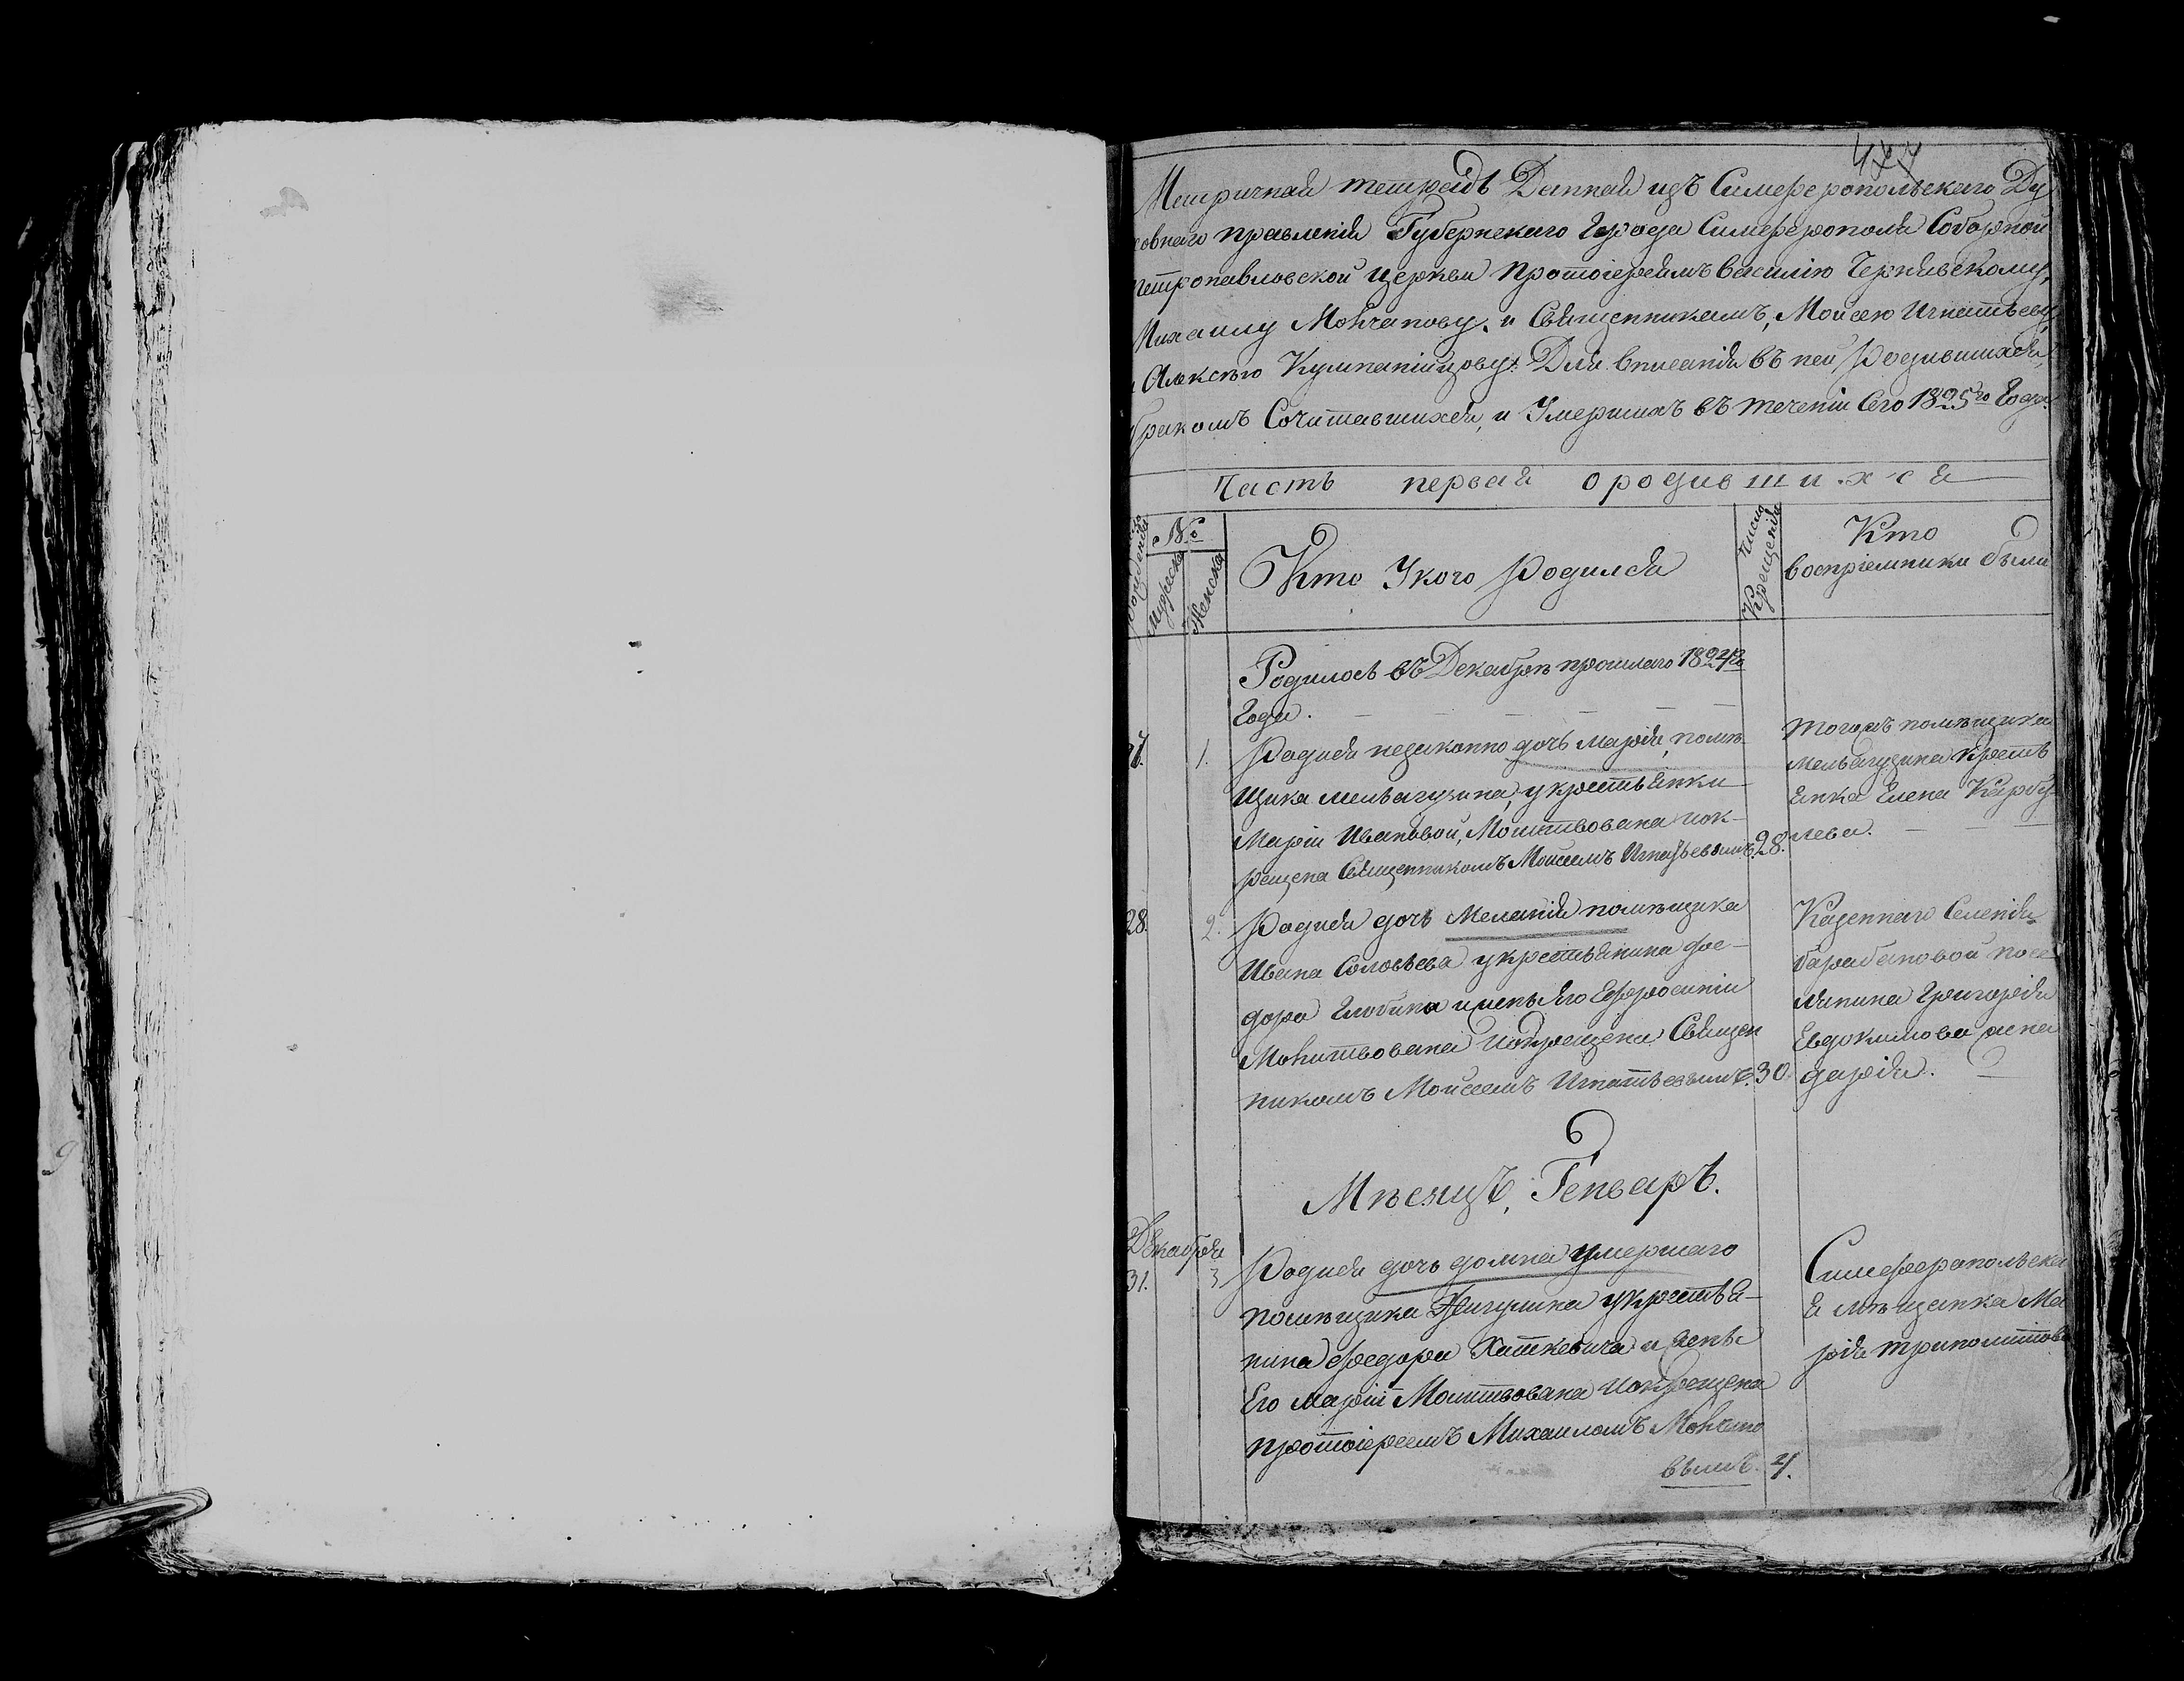 Метричная тетрадь Данная изъ Симферопольскаго Ду
ховнаго правленія Губернскаго Города Симферополя Соборной
петропавловской церкви протоіереямъ василію Чернявскому,
Михаилу Мончанову, и Священникамъ, Моисею Игнатьеву,
и Алексѣю Кумпанійцову: Для вписанія въ ней Родившихся,
бракомъ Сочитавшихся, и Умершихъ въ теченіи Сего 1825го Года
Часть первая о родившихся
Числа рожденія
№
мужеска
Женска
Кто Укого Родился
Числа Крещенія
Кто
воспріемники были
Родилось въ Декабрѣ прошлаго 1824го
Года.
27. 1. Родися незаконно дочь Марія, помѣ-
щика мельгузина, укрестьянки
Маріи Ивановой, Молитвована иок-
рещена Священникомъ Моисеемъ Игнатьевымъ. 28.
тогожъ помѣщика
мельгузина крестъ
янка Елена
лева.
28. 2. Родися дочь Меланія помѣщика
Ивана Соловьева укрестьянина фео-
дора Глобина ижены его Ефросиніи
Молитвована иокрещена Священ
никомъ Моисеемъ Игнатьевымъ. 30
Казеннаго Селенія
барабановой посе
лянина Григорія
Евдокимова жена
дарія.
Мѣсяцъ, Генварь.
Декабря
31. 3 Родися дочь домна умершаго
помѣщика укрестья-
нина феодора Хаткевича и жены
Его Маріи Молитвована иокрещена
протоіереемъ Михаиломъ Мончано
вымъ. 4.
Симферопольска
я мѣщанка Ма
рія